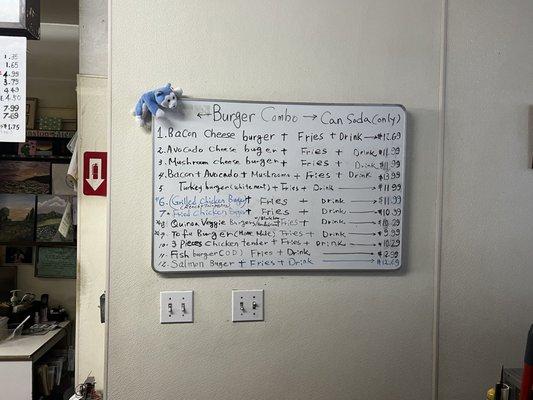 1.35
1.65
4.99
3.79
4.49
4.50
7.99
7.69
$1.75
← Burger Combo → Can Soda (only)
1. Bacon Cheese burger + Fries + Drink → $12.69
2. Avocado Cheese burger + Fries + Drink $11.99
3. Mushroom cheese burger + Fries + Drink $11.99
4. Bacon + Avocado + Mushrooms + Fries + Drink $13.99
5 Turkey burger (white meat) + Fries + Drink → $11.99
*6. (Grilled Chicken Burger) + Fries + Drink → $11.99
7* Fried Chicken Burger + Fries + Drink → $10.99
*8. Quinoa Veggie Burgers Fries + Drink → $10.29
*9. Tofu Burger (Home Made) + Fries + Drink → $9.99
10. 3 Pieces Chicken tender + Fries + Drink → $10.29
11. Fish burger (OD) Fries + Drink → $12.99
12. Salmon Buger + Fries + Drink → $12.69